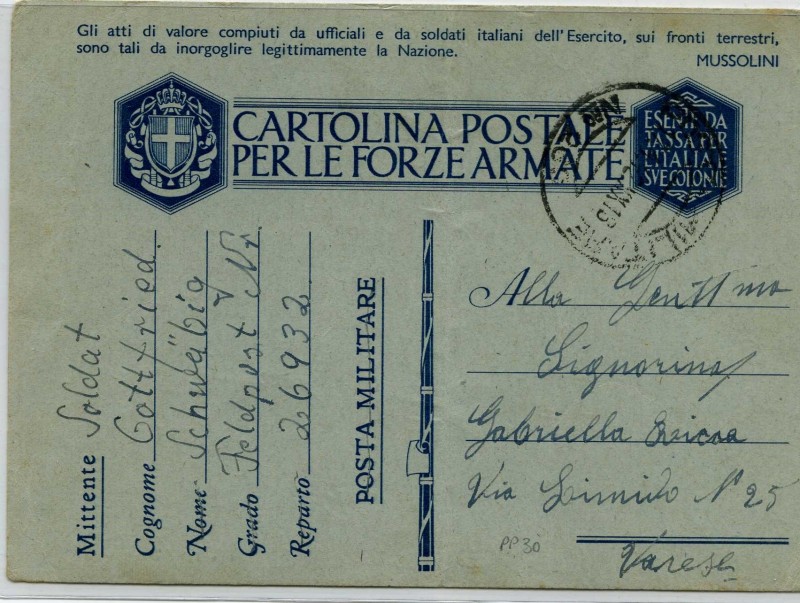 Gli atti di valore compiuti da ufficiali e da soldati italiani dell'Esercito, sui fronti terrestri,
sono tali da inorgoglire legittimamente la Nazione.
MUSSOLINI
CARTOLINA POSTALE
PER LE FORZE ARMATE
ESENTE DA
TASSA PER
L'ITALIA E
SVE COLONIE
Mittente Soldat
Cognome Gottfried
Nome Schwäbig
Grado Feldpost Nr.
Reparto 26932
POSTA MILITARE
Alla Gentt ma
Signorina
Gabriella
Via N° 25
Varese
PP30